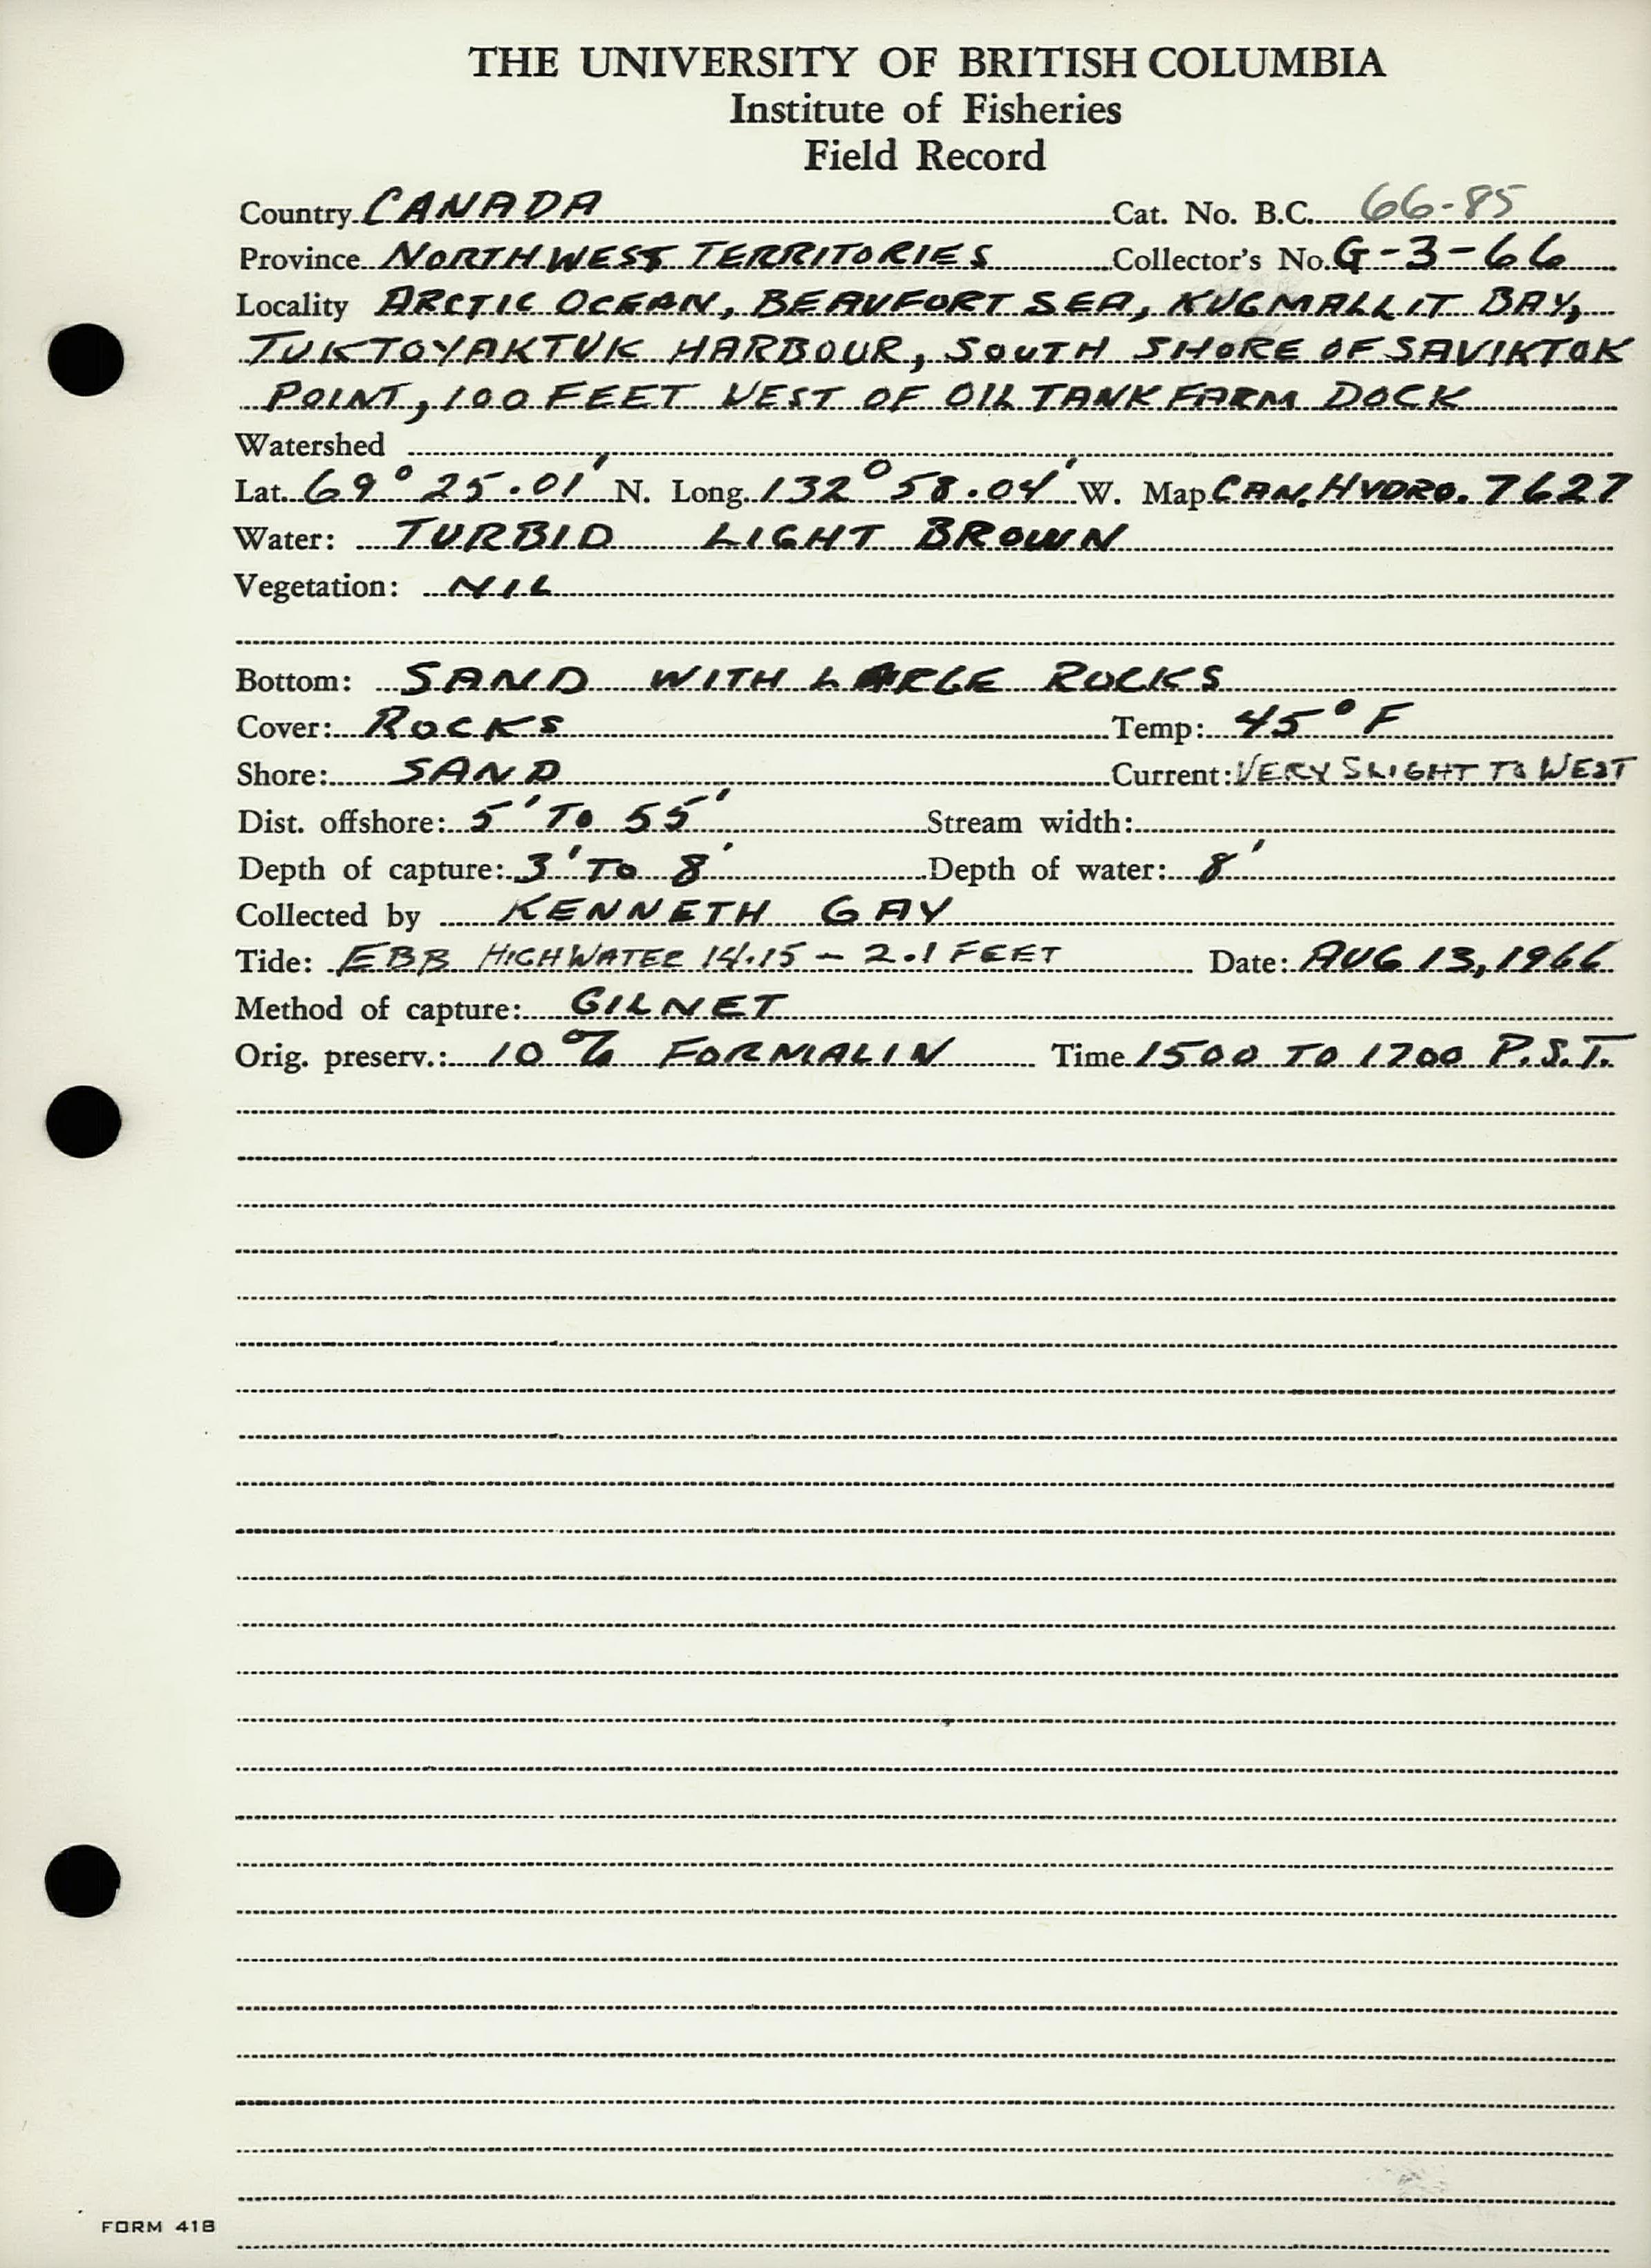 THE UNIVERSITY OF BRITISH COLUMBIA
Institute of Fisheries
Field Record
Country CANADA Cat. No. B.C. 66-85
Province NORTHWEST TERRITORIES Collector's No. G-3-66
Locality ARCTIC OCEAN, BEAUFORT SEA, KUGMALLIT BAY,
TUKTOYAKTUK HARBOUR, SOUTH SHORE OF SAVIKTOK
POINT, 100 FEET WEST OF OIL TANK FARM DOCK
Watershed
Lat. 69° 25.01' N. Long. 132° 58.04' W. Map CAN. HYDRO. 7627
Water: TURBID LIGHT BROWN
Vegetation: NIL
Bottom: SAND WITH LARGE ROCKS
Cover: ROCKS Temp: 45° F
Shore: SAND Current: VERY SLIGHT TO WEST
Dist. offshore: 5' TO 55' Stream width:
Depth of capture: 3' TO 8' Depth of water: 8'
Collected by KENNETH GAY
Tide: EBB HIGH WATER 14.15 - 2.1 FEET Date: AUG 13, 1966
Method of capture: GILNET
Orig. preserv.: 10% FORMALIN Time 1500 TO 1700 P.S.T.
FORM 41B